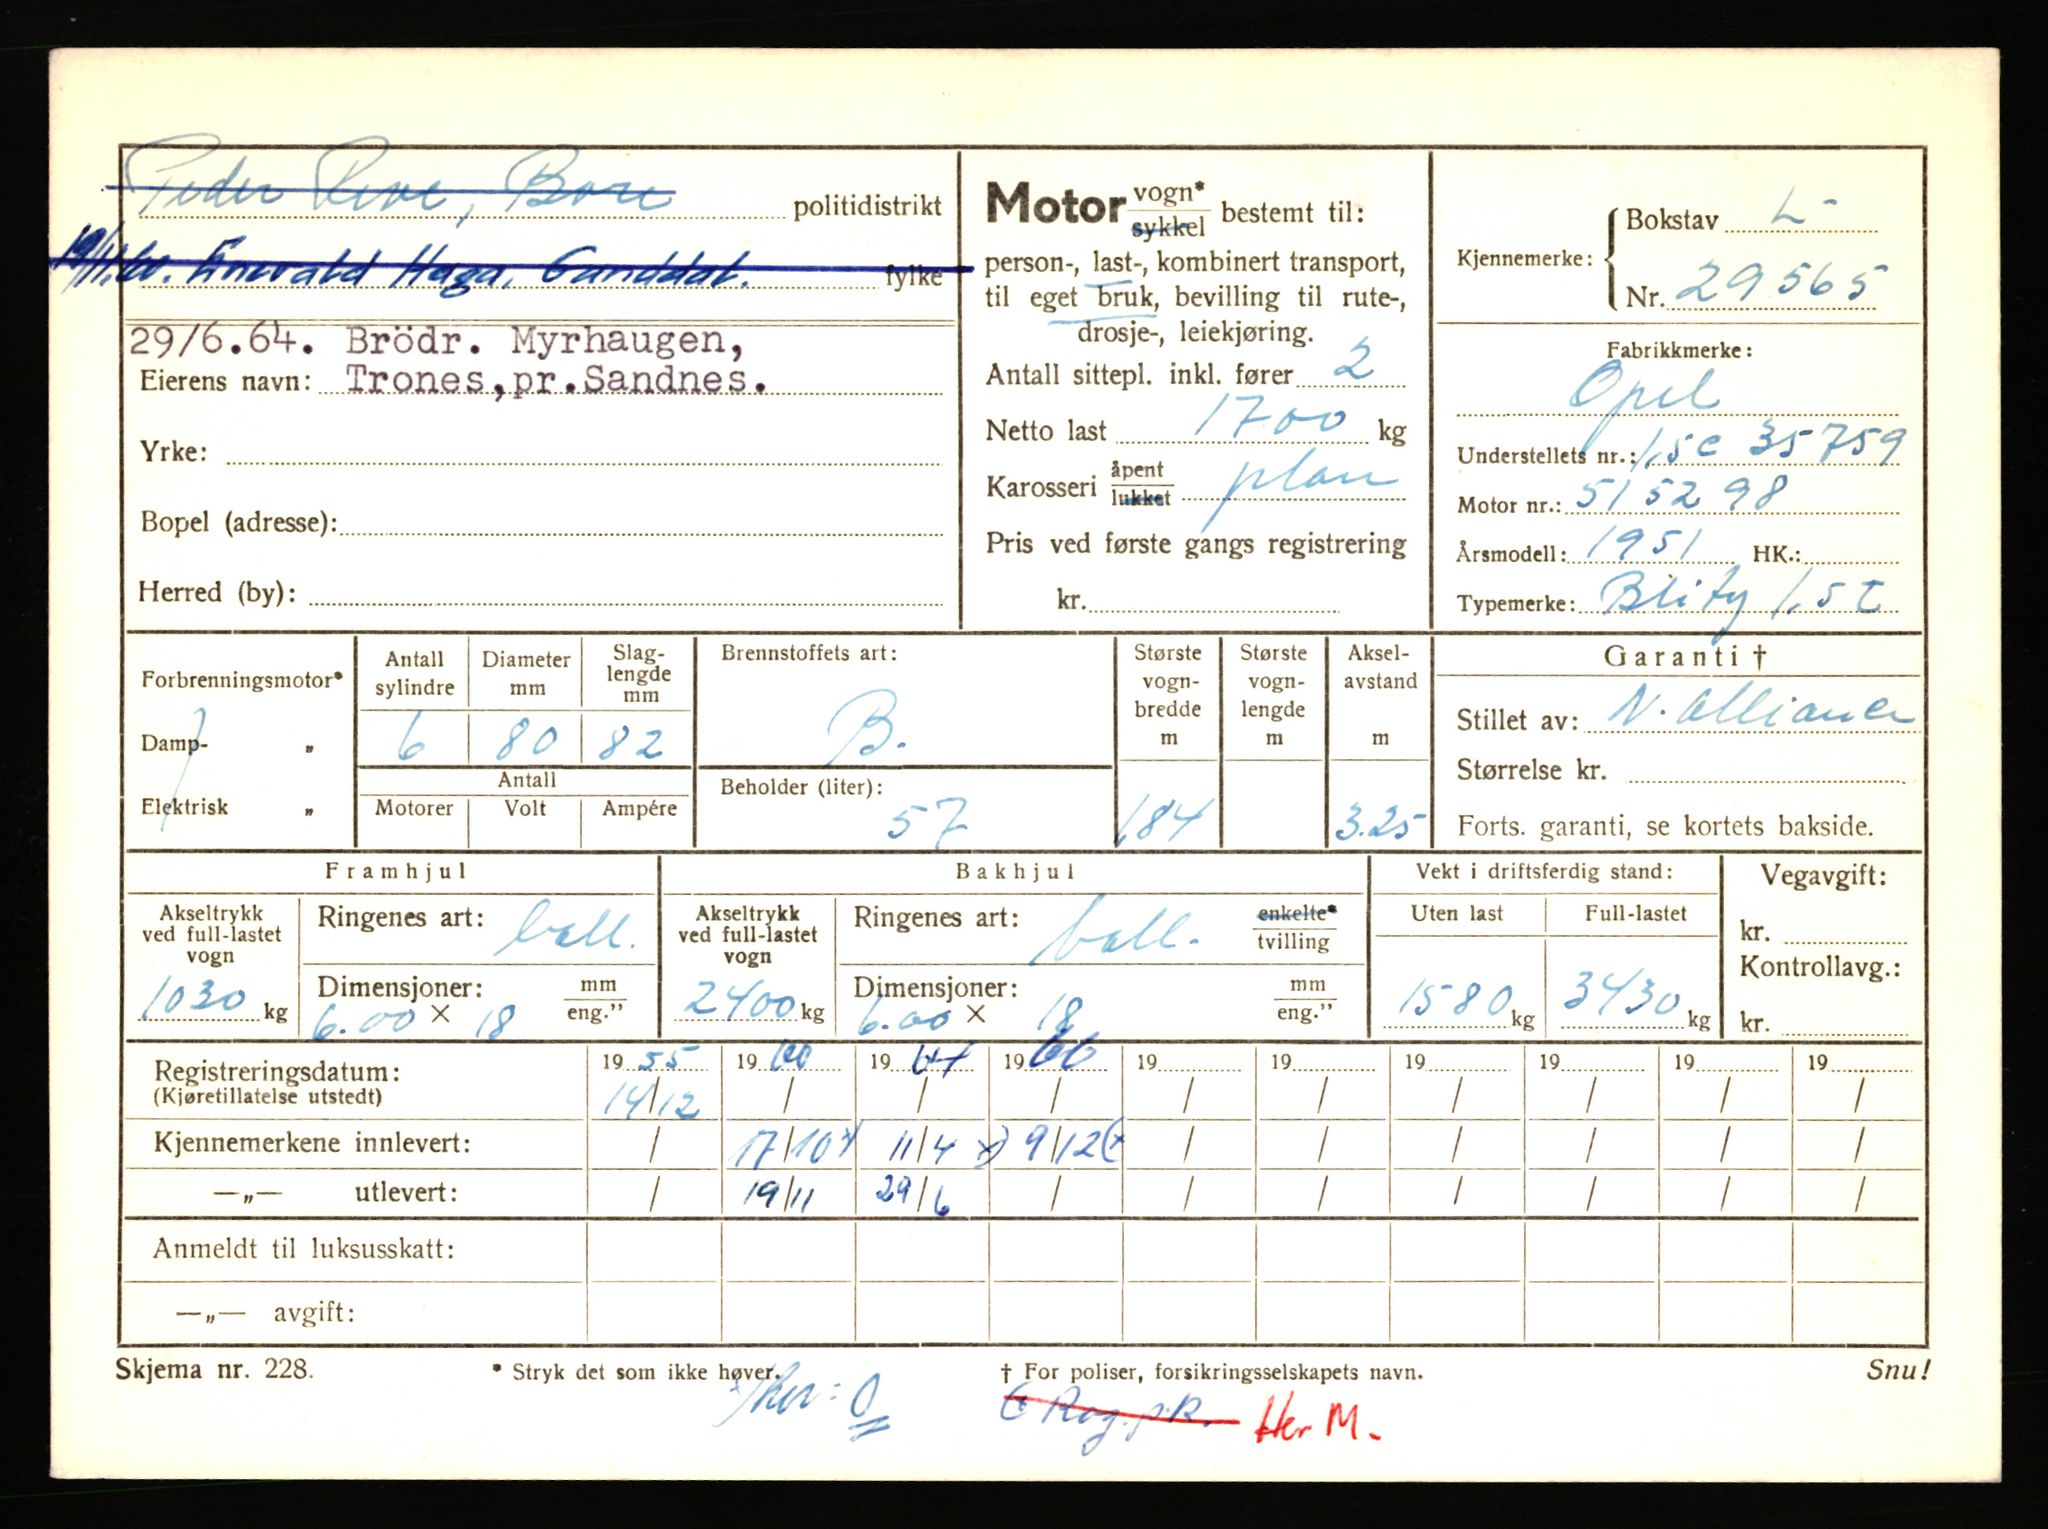 Peder Reve, Bore politidistrikt
19/11.60. Enevald Haga, Ganddal. fylke
29/6.64. Brödr. Myrhaugen,
Eierens navn: Trones, pr. Sandnes.
Yrke:
Bopel (adresse):
Herred (by):
Motor vogn* / sykkel bestemt til:
person-, last-, kombinert transport,
til eget bruk, bevilling til rute-,
drosje-, leiekjøring.
Antall sittepl. inkl. fører 2
Netto last 1700 kg
Karosseri åpent / lukket plan
Pris ved første gangs registrering
kr.
Kjennemerke: Bokstav L-
Nr. 29565
Fabrikkmerke:
Opel
Understellets nr.: 1,5 C 35759
Motor nr.: 5152 98
Årsmodell: 1951 HK.:
Typemerke: Blitz 1,5 t
Forbrenningsmotor*
Damp- „
Elektrisk „
Antall sylindre 6
Diameter mm 80
Slag-lengde mm 82
Antall
Motorer Volt Ampére
Brennstoffets art:
B.
Beholder (liter):
57
Største vogn-bredde m 1,84
Største vogn-lengde m
Aksel-avstand m 3.25
Garanti †
Stillet av: N. Alliance
Størrelse kr.
Forts. garanti, se kortets bakside.
Framhjul
Akseltrykk ved full-lastet vogn
1030 kg
Ringenes art: ball.
Dimensjoner: mm / eng."
6.00 × 18
Bakhjul
Akseltrykk ved full-lastet vogn
2400 kg
Ringenes art: ball. enkelte* / tvilling
Dimensjoner: mm / eng."
6.00 × 18
Vekt i driftsferdig stand:
Uten last Full-lastet
1580 kg 3430 kg
Vegavgift:
kr.
Kontrollavg.:
kr.
Registreringsdatum: 19 55 19 60 19 64 19 66 19 19 19 19 19 19
(Kjøretillatelse utstedt) 14/12 / / / / / / / / /
Kjennemerkene innlevert: / 17/10 x) 11/4 x) 9/12 (x / / / / / /
—„— utlevert: / 19/11 29/6 / / / / / / /
Anmeldt til luksusskatt:
—„— avgift:
Skjema nr. 228. * Stryk det som ikke høver. † For poliser, forsikringsselskapets navn. Snu!
Rog. p.k. Her M.